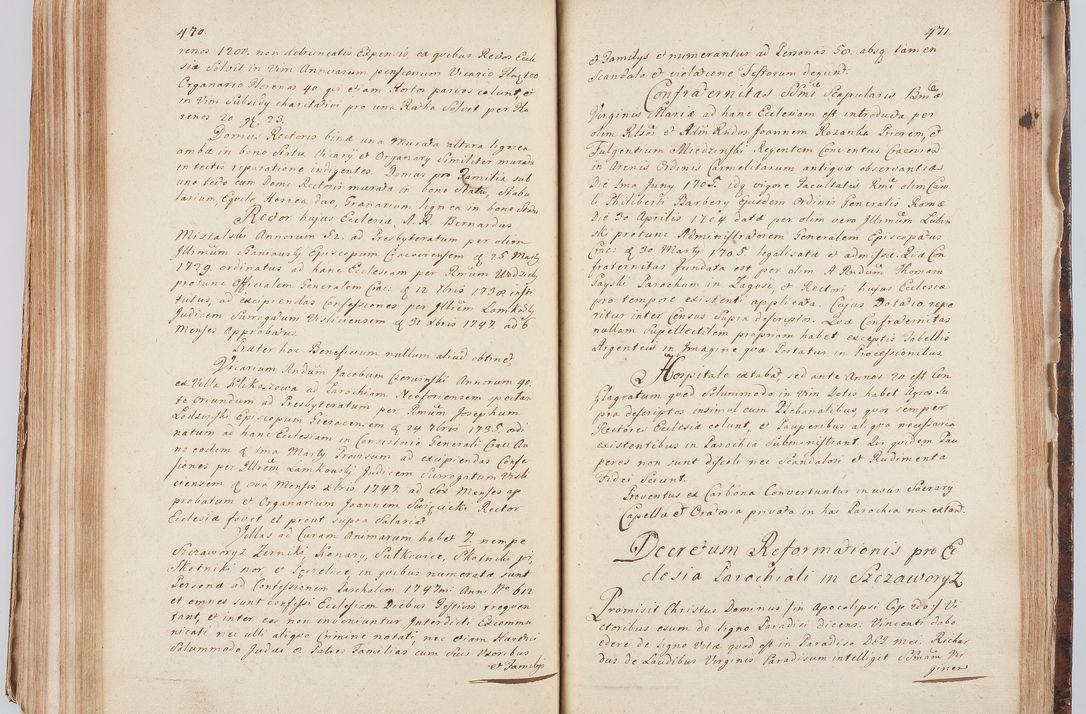 470.
renos 1200. non detruncatis Expensis, ex quibus Rector Eccle
siæ Solvit in Vim Annuarum pensionum Vicario
Organario Florenos 40 qui etiam Hortos parvos colunt, et
in Vim Subsidy charitativi pro una Ratha Solvit per Flo
renos 20 gr 23.
Domus Rectoris binæ una Murata altera lignea
ambæ in bono Statu. Vicary et Organary Similiter muratæ
in tectis reparatione indigentes. Domus pro Familia sub
uno tecto cum Domo Rectoris murata in bono Statu, Stabu
larium, Equile, Horrea duo, Granarium lignea in bono Statu
Rector hujus Ecclesiæ A. R. Bernardus
Mistalski Annorum 52. ad Presbyteratum per olim
Illrmum Episcopum Cracoviensem d 25 Marty
1729. ordinatus ad hanc Ecclesiam per Rmum Wodzicki
protunc Officialem Generalem Crac: d 12 7bris 1738 insti
tutus, ad excipiendas Confessiones per Illrem Lamkosky
Judicem Surrogatum Visliciensem d 31 Xbris 1747. ad 6
Menses Approbatus.
Præter hoc Beneficium nullum aliud obtinet
Vicarium Rndum Jacobum Czerwinski Annorum 40.
ex Villa Klikuszowa ad Parochiam Neoforiensem spectan
te Oriundum ad Presbyteratum per Rmum Josephum
Lodzinski Episcopum d 24 7bris 1735 ordi
natum ad hanc Ecclesiam in Consistorio Generali Crac: An
no eodem d 1ma Marty Provisum ad excipiendas Confes
siones per Illrem Lamkowsky Judicem Surrogatum Visli
ciensem d 8va Mensis Xbris 1747. ad Sex Menses ap
probatum et Organarium Joannem Swięcicki Rector
Ecclesiæ fovet et prout supra Salariat
Villas ad Curam Animarum habet 7 nempe
Szczaworyz Zerniki, Konary, Sutkowce, Skotniki pri,
Skotniki nor, et in quibus numeratæ sunt
Personæ ad Confessionem Paschalem 1747mi Anni No 612
et omnes sunt Confessi Ecclesiam Diebus Festivis frequen
tant, et inter eos non inveniuntur Interdicti Excommu
nicati nec ulli aliquo Crimine notati, nec etiam Hæretici
Solummodo Judæi Familias cum Suis Uxoribus
et Familys
471.
et Familys et numerantur ad Personas 50. absq tamen
Scandalo et violatione Festorum degunt.
Confraternitas Ssmi Scapularis Bmæ
Virginis Mariæ ad hanc Ecclesiam est introducta, per
olim Rlsos et Admrndos Joannem Rozanka Priorem, et
Fulgentium Miedzinski Regentem Conventus Cracovien
in Arenis Ordinis Carmelitarum antiquæ observantiæ
Die 1ma Juny 1705. idq vigore Facultatis Rmi olim Caro
li Philiberti Barbery ejusdem Ordinis Generalis Romæ
Die 30 Aprilis 1704 datæ per olim vero Illrmum Lubin
ski protunc Administratorem Generalem Episcopatus
Crac: d 30 Marty 1705. legalisatæ et admissæ. Quæ Con
fraternitas fundata est per olim A Rndum Thomam
Payski Parochum in Zagosc, et Rectori hujus Ecclesiæ
pro tempore existenti applicata. Cujus Dotatio repe
ritur inter Census Supra descriptos. Quæ Confraternitas
nullam Supellectilem propriam habet exceptis Tabellis
Argenteis in Imagine quæ Portatur in Processionibus.
Hospitale extabat, sed ante Annos 20 est Con
flagratum quod Solummodo in Vim Dotis habet Agros Su
pra descriptos insimul cum Plebanalibus quos semper
Rectores Ecclesiæ colunt, et Pauperibus aliqua necessaria
existentibus in Parochia Subministrant. Qui quidem Pau
peres non sunt discoli nec Scandalosi et Rudimenta
Fidei Sciunt.
Proventus ex Carbona Convertuntur in usus Sacrary
Capella et Oratoria privata in hac Parochia non extant.
Decretum Reformationis pro Ec
clesia Parochiali in Szczaworyz
Promisit Christus Dominus /in Apocalypsi Cap 2do:/ Vi
ctoribus esum de ligno Paradisi dicens: Vincenti dabo
edere de ligno Vitæ quod est in Paradiso DEI mei. Richar
dus de Laudibus Virginis Paradisum intelligit Ssmam Vir
ginem